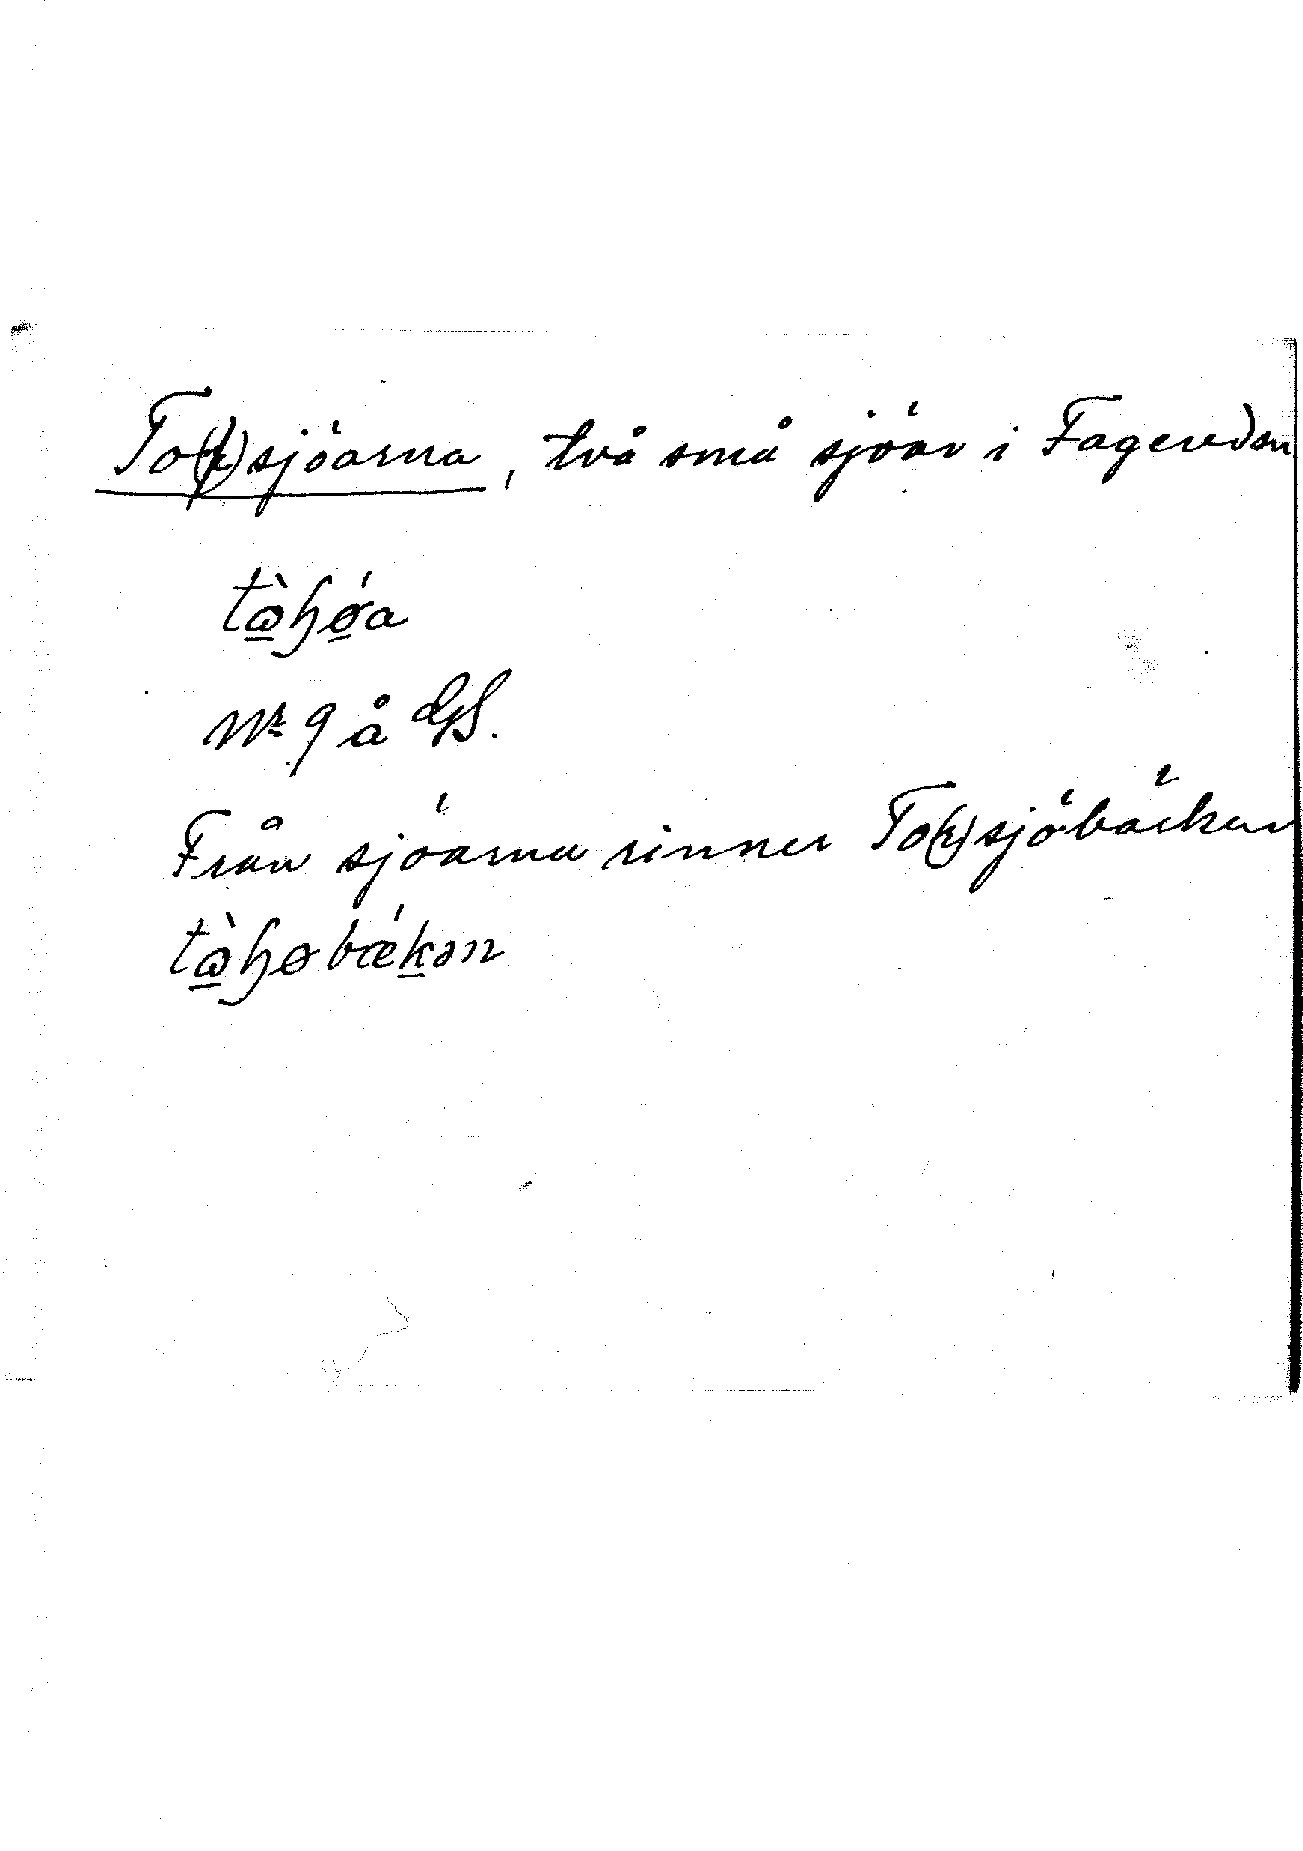 To(r)sjöarna, två små sjöar i
tὼɧǿa
Nr 9 å GS.
Från sjöarna rinner To(r)sjöbäcken
tὼɧøbǽkən